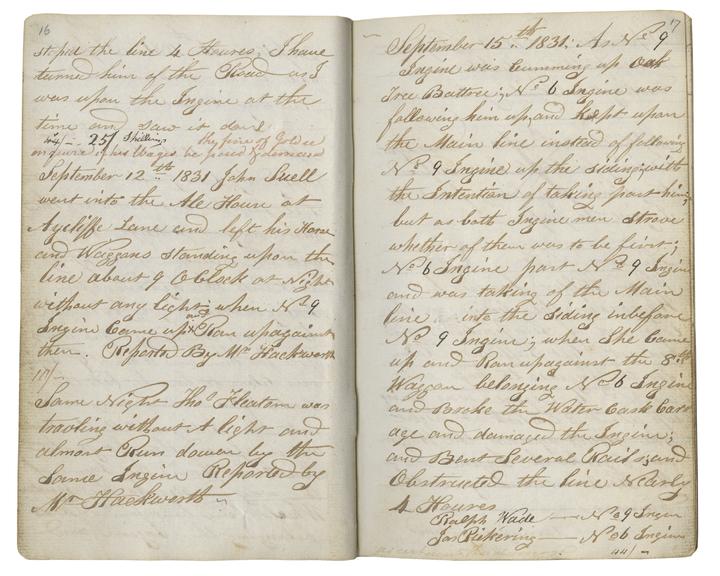 16
stopid the line 4 Houres; I have
turned him of the Road as I
was upon the Ingine at the
time and saw it dou
25/ Shillings the fine of
of his Wages he paid
September 12th 1831 John Snell
went into the Ale House at
Aycliffe Lane and left his Horse
and Waggons standing upon the
line about 9 O Clock at Night
without any light; when No 9
Ingine Came up & and Ran upagainst
them. Reported By Mr Hackworth
Same Night Thos Heatom was
travling without A light and
almost Run dowen by the
Same Ingine Reported by
Mr Hackworth
17
September 15th 1831: As No 9
Ingine was Cumming up Oak
Tree Battrie; No 6 Ingine was
following him up, and Kept upon
the Main line instead of following
No 9 Ingine up the Siding; with
the Intention of taking past him;
but as both Ingine men Strove
whether of them was to be first;
No 6 Ingine past No 9 Ingine
and was taking of the Main
line into the Siding inbefore
No 9 Ingine; when She Came
up and Ran upagainst the 8th
Waggan belonging No 6 Ingine
and Broke the Water Cask Carr
age and damaged the Ingine;
and Bent Several Rails; and
Obstructed the line Nearly
4 Houres
Ralph Wade — No 9 Ingin
Jas Pickering — No 6 Ingine
44/-